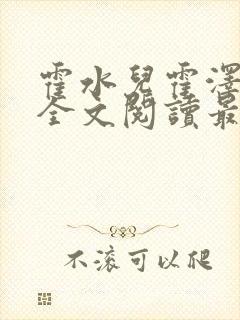 霍水兒霍澤
全文閱讀最
不滚可以爬